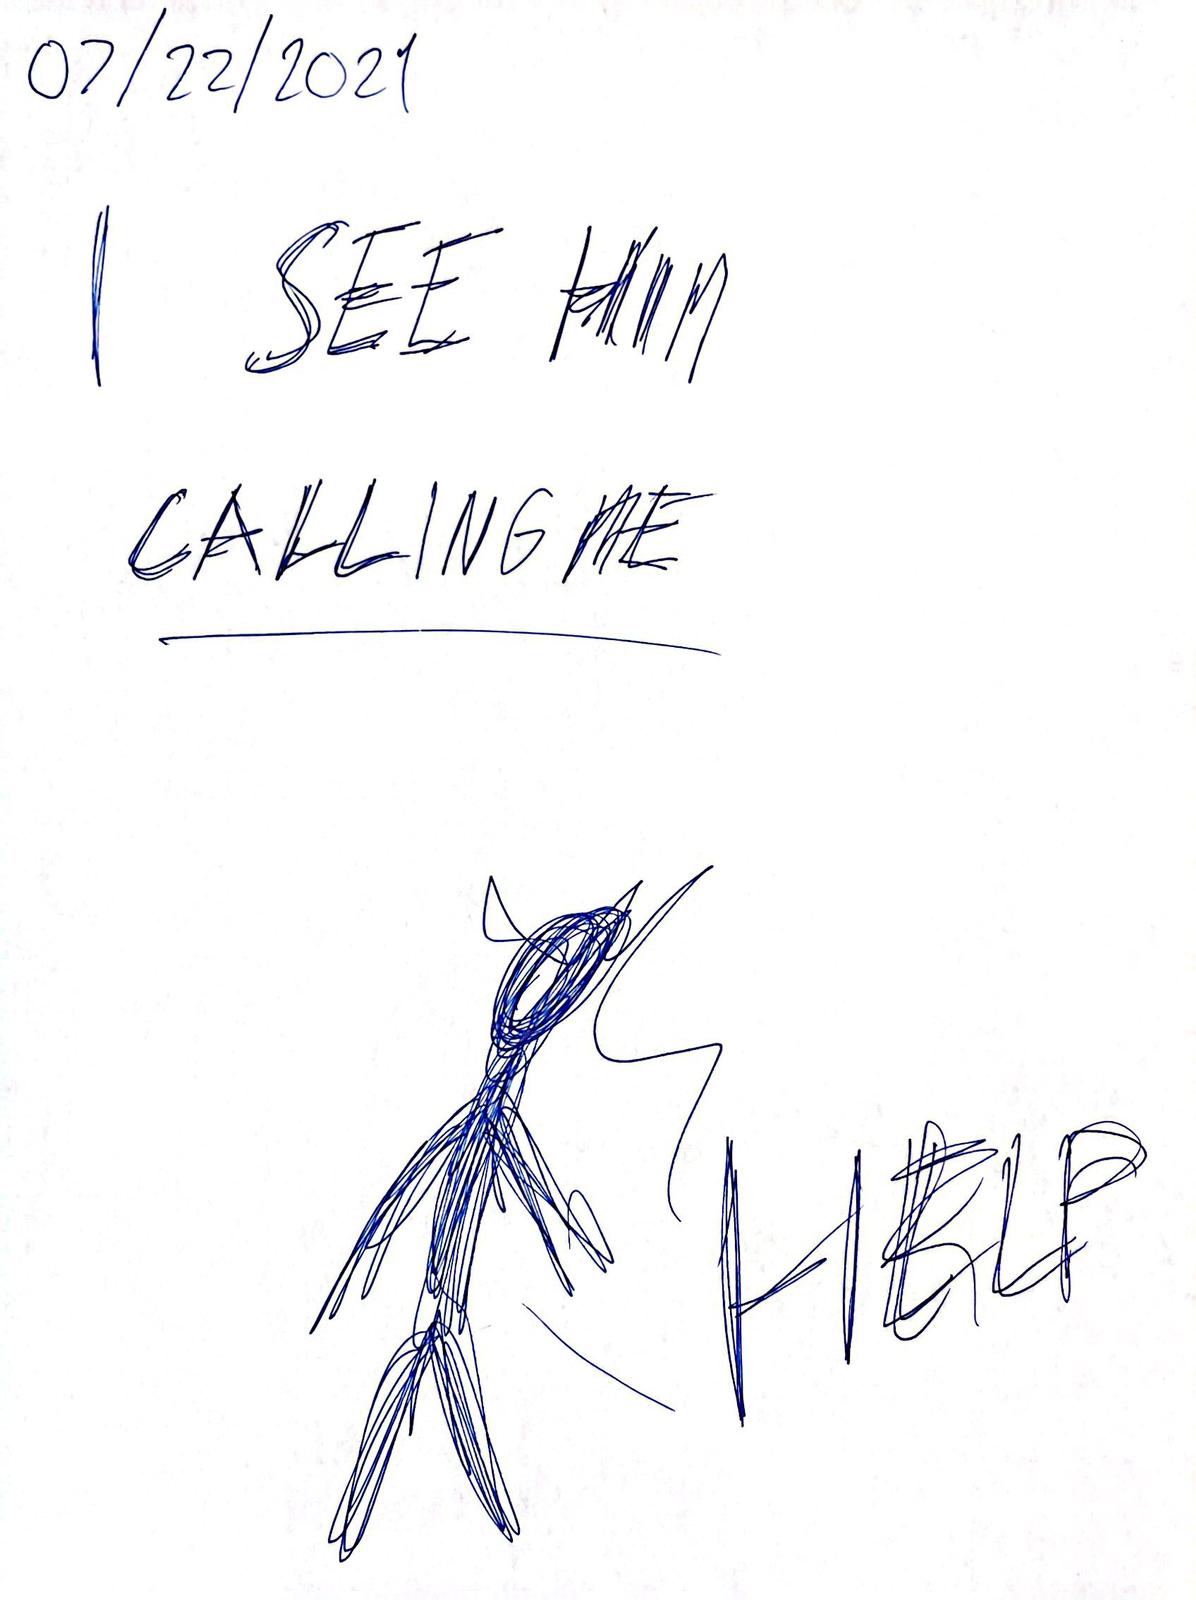 07/22/2021
I SEE HIM
CALLING ME
HELP